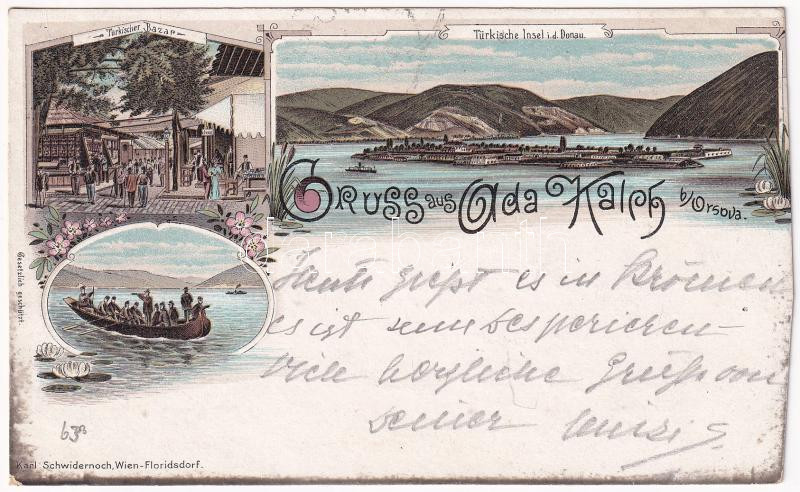 Türkischer Bazar
Türkische Insel i. d. Donau.
Gruss aus Ada Kaleh b/Orsova.
Gesetzlich geschützt.
Heute es in
es ist
Viele herzliche Grüße von
deiner
63
Karl Schwidernoch, Wien-Floridsdorf.